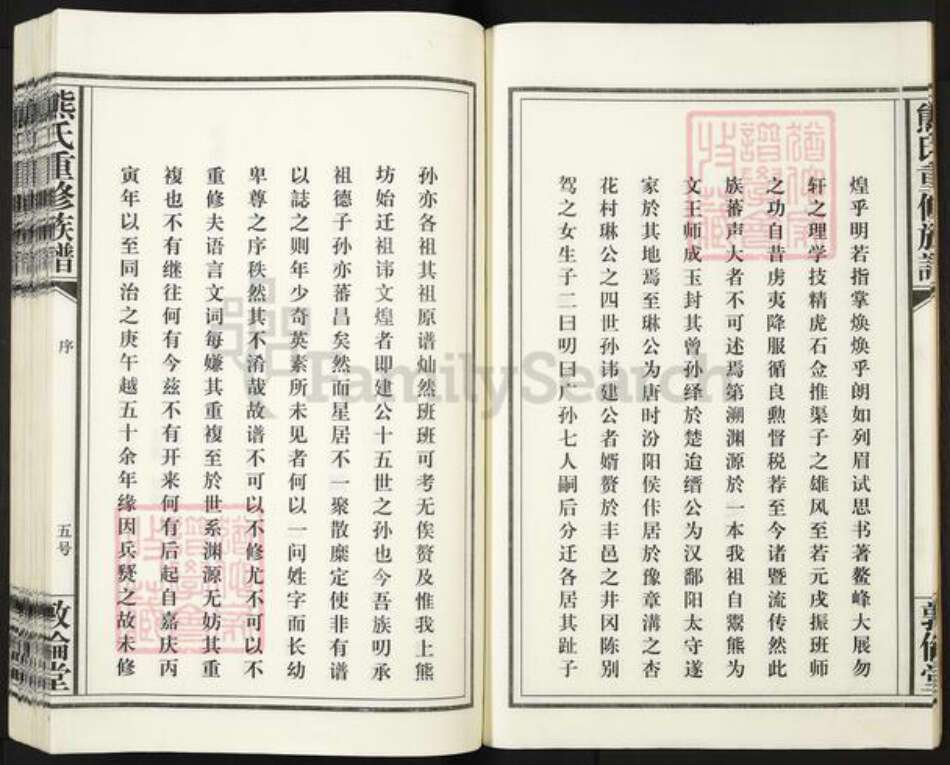 熊氏重修族譜
煌乎明若指掌焕焕乎朗如列眉试思书著鳌峰大展勿
轩之理学技精虎石佥推渠子之雄风至若元戌振班师
之功自昔虏夷降服循良勲督税荐至今诸暨流传然此
族蕃声大者不可述焉第溯渊源於一本我祖自鬻熊为
文王师成玉封其曾孙绎於楚迨缙公为汉鄱阳太守遂
家於其地焉至琳公为唐时汾阳侯佧居於豫章溝之杏
花村琳公之四世孙讳建公者婿赘於丰邑之井冈陈别
驾之女生子二曰明曰广孙七人嗣后分迁各居其趾子
敦倫堂
孙亦各祖其祖原谱灿然班班可考无俟赘及惟我上熊
坊始迁祖讳文煌者即建公十五世之孙也今吾族叨承
祖德子孙亦蕃昌矣然而星居不一聚散靡定使非有谱
以誌之则年少奇英素所未见者何以一问姓字而长幼
卑尊之序秩然其不淆哉故谱不可以不修尤不可以不
重修夫语言文词每嫌其重複至於世系渊源无妨其重
複也不有继往何有今兹不有开来何有后起自嘉庆丙
寅年以至同治之庚午越五十余年缘因兵燹之故未修
熊氏重修族譜
序
五号
敦倫堂
FamilySearch